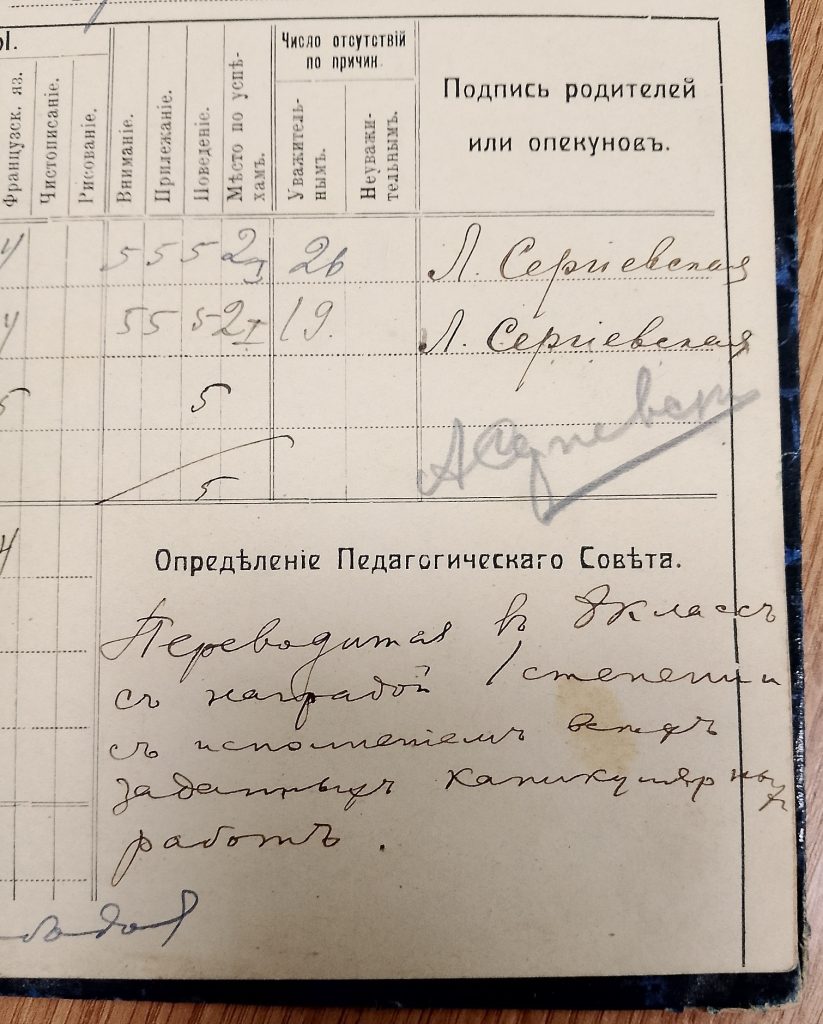 Число отсутствій
по причин.
Подпись родителей
или опекуновъ.
Французск. яз.
Чистописаніе.
Рисованіе.
Вниманіе.
Прилежаніе.
Поведеніе.
Мѣсто по успѣ-
хамъ.
Уважитель-
нымъ.
Неуважи-
тельнымъ.
4 5 5 5 2 I 26 Л. Сергіевская
4 5 5 5 2 I 19. Л. Сергіевская
5 5
5
4
Опредѣленіе Педагогическаго Совѣта.
Переводится въ 8 классъ
съ наградой I степени и
съ исполненіемъ всѣхъ
заданныхъ каникулярных
работъ.